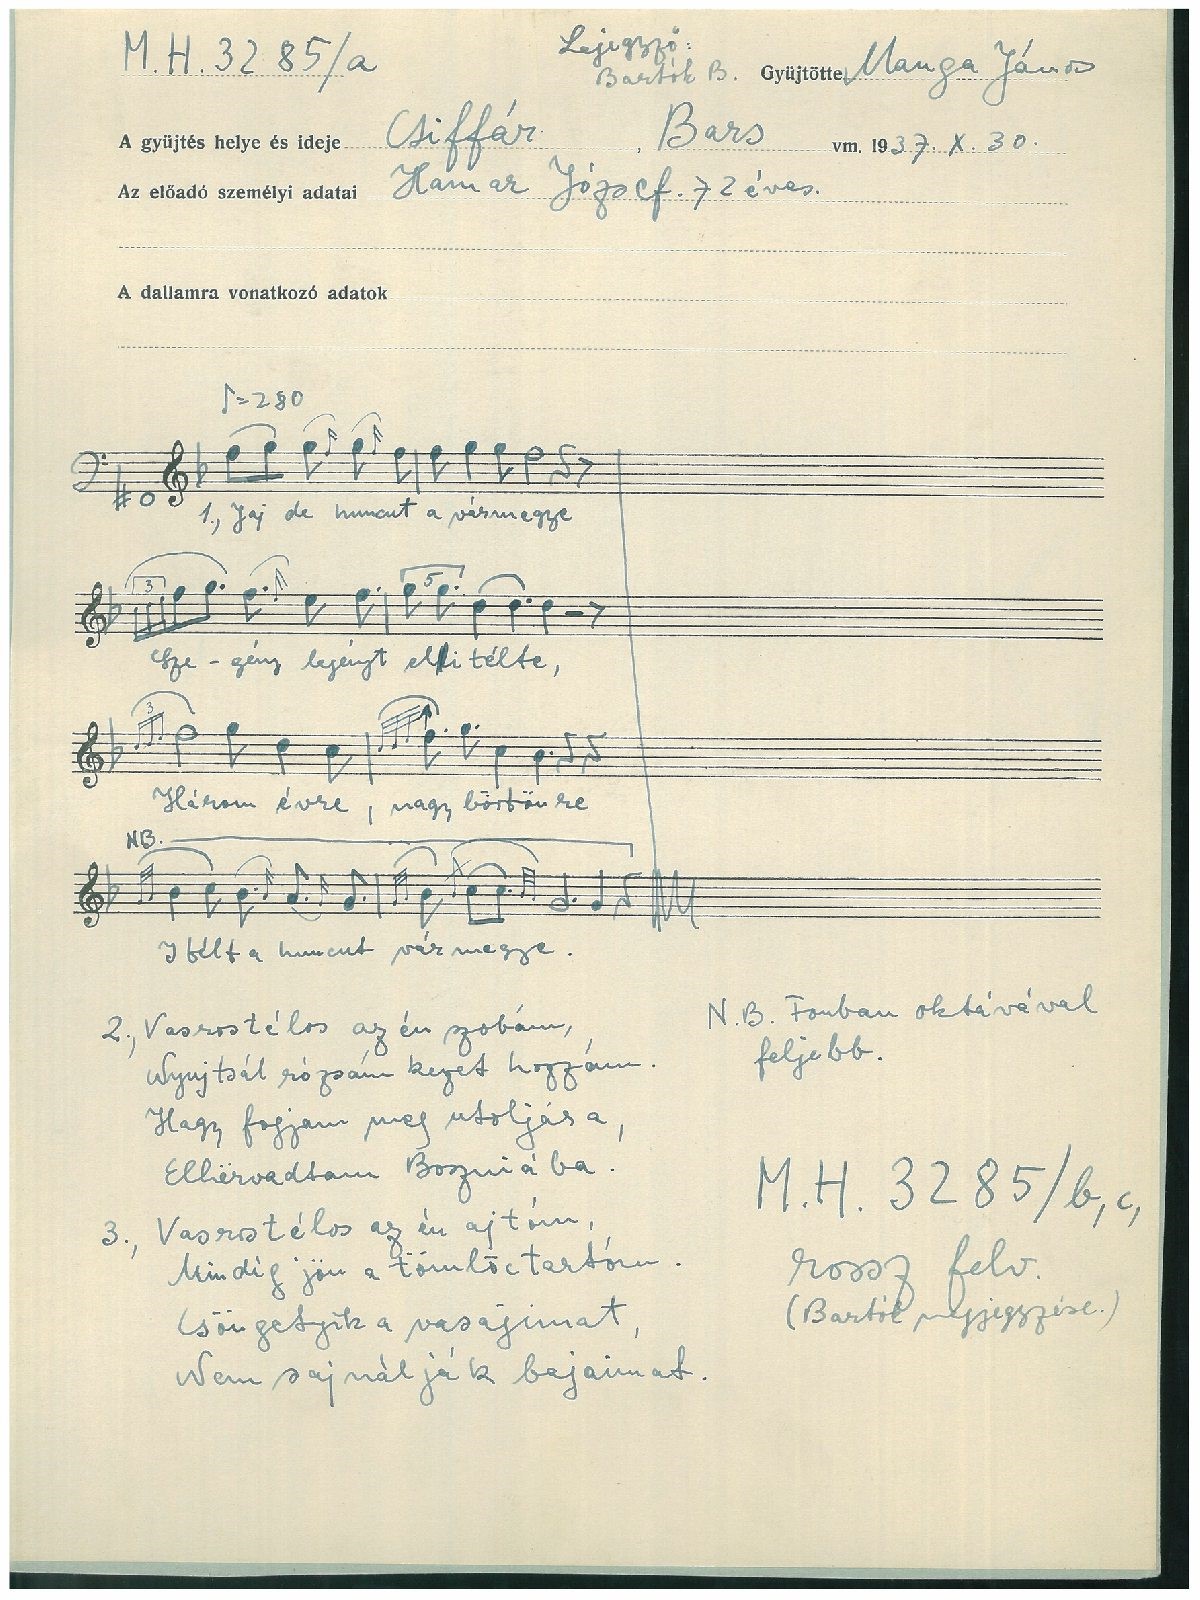 M.H. 3285/a
Lejegyző:
Bartók B. Gyüjtötte Manga János
A gyüjtés helye és ideje Csiffár, Bars vm. 1937. X. 30.
Az előadó személyi adatai Hamar József. 72 éves.
A dallamra vonatkozó adatok
♪=280
1., Jaj de huncut a vármegye
3 5
Sze-gény legényt elitélte,
3
Három évre, nagy börtönre
NB.
Itélt a huncut vármegye.
2., Vasrostélos az én szobám,
Nyujtsál rózsám kezet hozzám.
Hagy fogjam meg utoljára,
Elhërvadtam Boszniába.
N.B. Fonban oktávával
feljebb.
3., Vasrostélos az én ajtóm,
Mindig jön a tömlöctartóm.
Csöngetyik a vasajimat,
Nem sajnálják bajaimat.
M.H. 3285/b, c,
rossz felv.
(Bartók megjegyzése.)